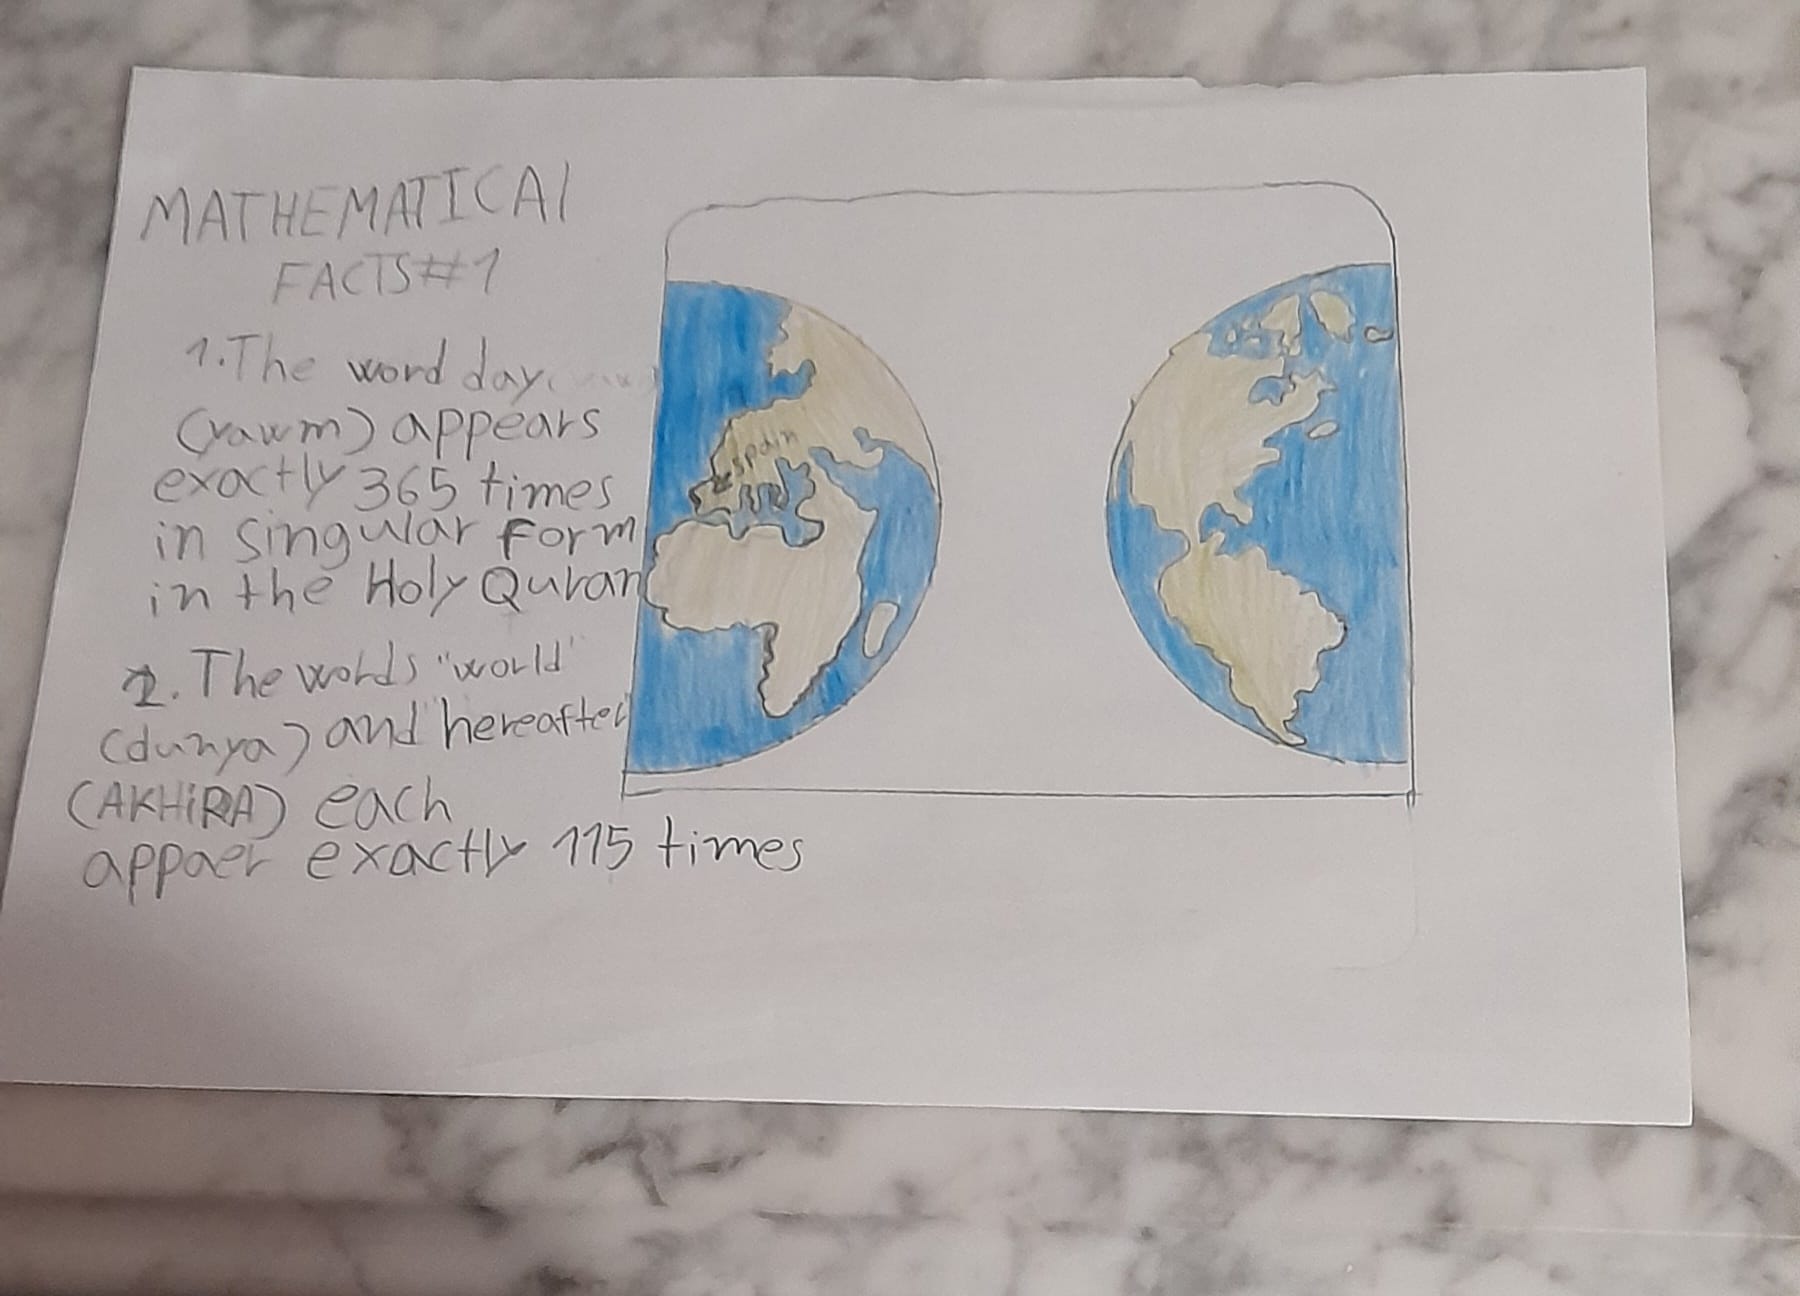 MATHEMATICAl
FACTS#1
1.The word day
(yawm) appears
exactly 365 times
in singular form
in the Holy Quran
2. The words "world"
(dunya) and "hereafter"
(AKHiRA) each
appaer exactly 115 times
spain